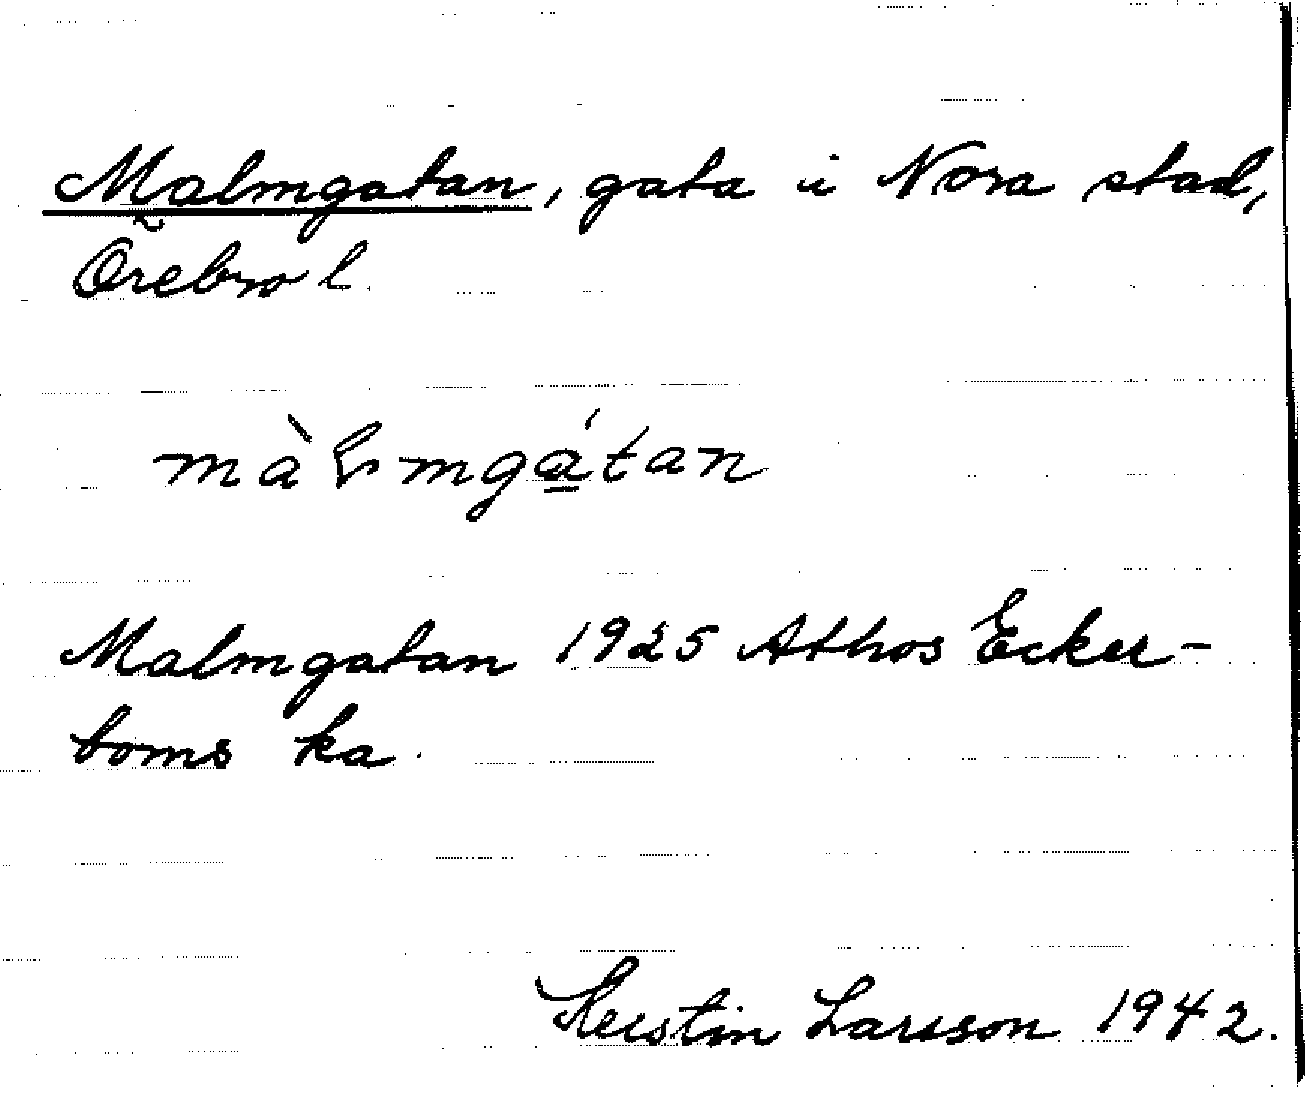 Malmgatan, gata i Nora stad,
Örebro l.
màɬmgá̱tan
Malmgatan 1925 Athos Ecker-
boms ka.
Kerstin Larsson 1942.